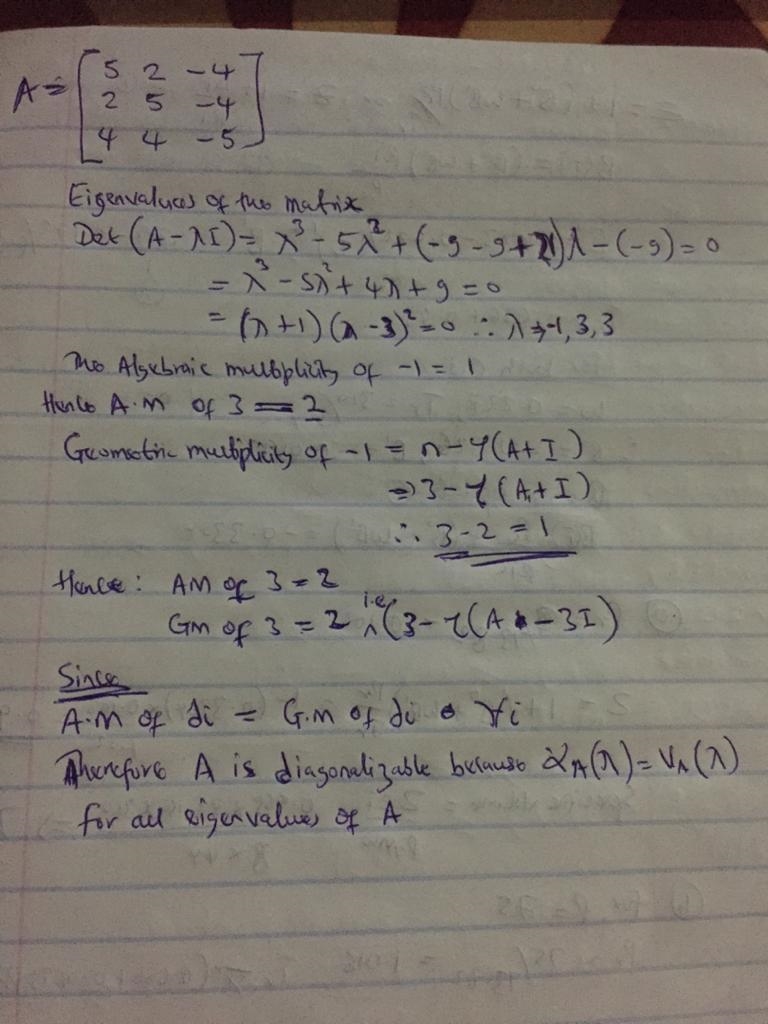 A = [5 2 -4
2 5 -4
4 4 -5]
Eigenvalues of the matrix
Det (A - λI) = λ³ - 5λ² + (-9 - 9 + 21)λ - (-9) = 0
= λ³ - 5λ² + 4λ + 9 = 0
= (λ + 1) (λ - 3)² = 0 ∴ λ ⇒ -1, 3, 3
The Algebraic multiplicity of -1 = 1
Hence A.M of 3 = 2
Geometric multiplicity of -1 = n - r(A + I)
⇒ 3 - r(A + I)
∴ 3 - 2 = 1
Hence: AM of 3 = 2
GM of 3 = 2 i.e (3 - r(A - 3I)
Since
A.M of λi = G.M of λi ∀i
Therefore A is diagonalizable because αA(λ) = VA(λ)
for all eigenvalues of A